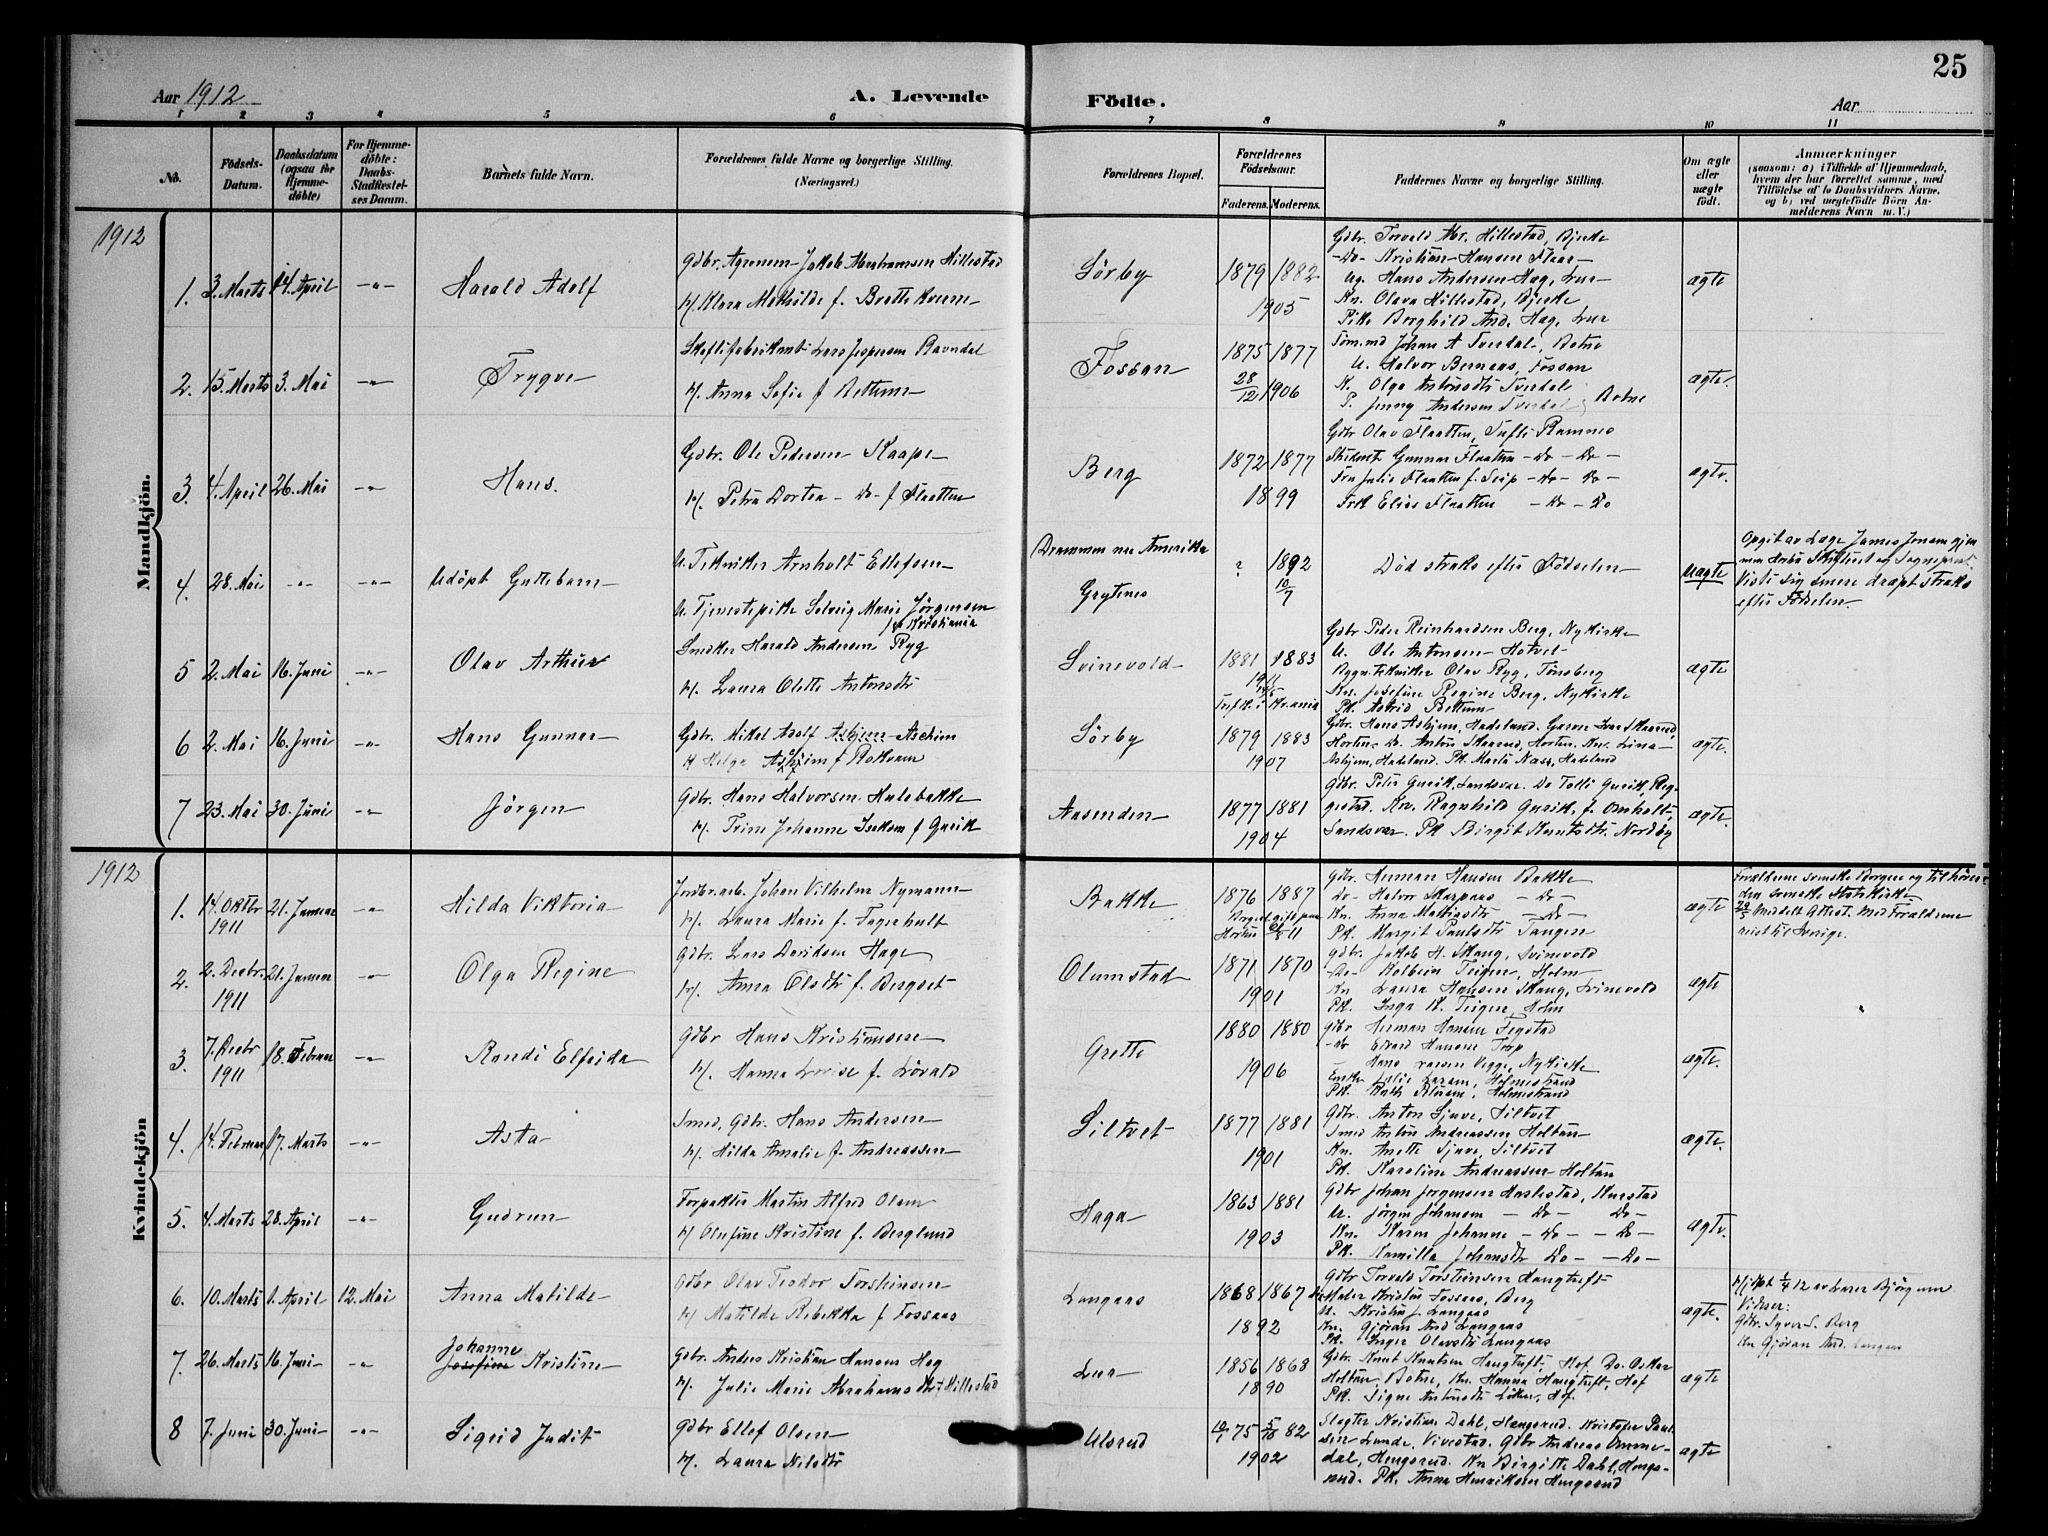 25
Aar 1912
A. Levende
Födte.
Aar
1 2 3 4 5 6 7 8 9 10 11
No.
Födsels-Datum.
Daabsdatum (ogsaa for Hjemme-döbte)
For Hjemme-döbte: Daabs-Stadfæstel-ses Datum.
Barnets fulde Navn.
Forældrenes fulde Navne og borgerlige Stilling.
(Næringsvei.)
Forældrenes Bopæl.
Forældrenes Födselsaar.
Faderens. Moderens.
Faddernes Navne og borgerlige Stilling.
Om ægte eller uægte födt.
Anmærkninger
(saasom: a) i Tilfælde af Hjemmedaab,
hvem der har forrettet samme, med
Tilföielse af to Daabsvidners Navne,
og b) ved uægtefödte Börn An-
melderens Navn m. V.)
Mandkjön.
1912
1. 3. Marts 14. April -"- Harald Adolf
Gdbr. Agronom Jakob Abrahamsen Hillestad
H. Klara Mathilde f. Brette
Sörby 1879 1882
1905
Gdbr. Torvald Abr. Hillestad, Bjerke
Do Kristian Hansen
Ug. Hans Andersen Hag, Lur
Kn. Olava Hillestad, Bjerke
Pike Borghild And. Hag, Lur
ægte
2. 15. Marts 3. Mai -"- Trygve
Skaftefabrikant Lars Jespersen Ravndal
H. Anna Sofie f Bettum
Fossan 1875 1877
28/12 1906
Tömmd Johan A Tverdal, Botne
U. Halvor Bernaas, Fossan
K. Olga Antonsdtr Tverdal
P. Jenny Andersen Tverdal } Botne
ægte.
3. 4. April 26. Mai -"- Hans.
Gdbr. Ole Pedersen Kaape
H. Petra Dortea - Do - f Flaatten
Berg 1872 1877
1899
Gdbr Olav Flaatten, Tufte Ramnes
Gunnar Flaatten - Do - Do -
Fru Julie Flaatten f. Seip - Do - Do -
Frk Elise Flaatten - Do - Do
ægte.
4. 28. Mai -"- -"- Udöpt Guttebarn
U. Tekniker Arnholt Ellefsen
U. Tjenestepike Solveig Marie Jörgensen
fr Kristiania
Drammen nu Amerika
Grytenes
? 1892
10/7
Död straks efter Födselen
Uægte
Opgit av Læge James Jensen gjen
Viste sig senere dræpt straks
efter Födselen.
5 2. Mai 16. Juni -"- Olav Arthur
Snekker Harald Andersen Ryg
H. Laura Olette Antonsdtr
Svinevold 1881 1883
1911
Gdbr Peder Reinhardsen Berg, Nykirke
U. Ole Antonsen Hotvet
Byggn.tekniker Olav Ryg, Tönsberg
Kn. Josefine Regine Berg, Nykirke
Pk. Astrid Bettum
ægte
6 2. Mai 16. Juni -"- Hans Gunnar
Gdbr. Mikal Adolf Asbjem Aschim
H Helga Aschim f Rokvam
Sörby 1879 1883
1907
Gdbr. Hans Asbjem, Hadeland.
Horten. Do. Anton Skaarud, Horten. Kn. Lina
Asbjem, Hadeland. Pk. Marta Næss, Hadeland
ægte.
7 23. Mai 30. Juni -"- Jörgen
Gdbr. Hans Halvorsen Hulebakke
H. Trine Johanne f Gurik
Aasenden 1877 1881
1904
Gdbr. Peter Gurik, Sandsvær. Do Tolli Gurik, Reg-
gestad. Kn. Ragnhild Gurik, f. Omholt,
Sandsvær. Pk. Birgit Knutsdtr. Nordby
ægte.
Kvindekjön
1912
1. 14. Oktbr 1911 21. Januar -"- Hilda Viktoria
Jordbr.arb. Johan Vilhelm Nymann
H. Laura Marie f. Fagerhult
Bakke 1876 1887
Borgerl. gift paa
Horten
Gdbr. Herman Hansen Bakke
Do Halvor Skarpaas - Do -
Kn. Anna Mathisdtr - Do -
Pk. Margit Paulsdtr Tangen
ægte
Forældrene svenske Borgere og tilhörer
den svenske Statskirke.
Meddelt Attest. Med Forældrene
reist til Sverige.
2. 2. Decbr. 1911 21. Januar -"- Olga Regine
Gdbr. Lars Davidsen Hage
H. Anna Olsdtr f. Bergset
Olumstad 1871 1870
1901
Gdbr. Jakob H. Skaug, Svinevold
Do Kolbein Teigen, Holm
Kn Laura Hansen Skaug, Svinevold
Pk. Inga K. Teigen Holm
ægte
3. 7. Decbr 1911 18. Februar -"- Randi Elfrida
Gdbr Hans Kristiansen
H. Hanna Lovise f. Lövald
Grette 1880 1880
1906
Gdbr Herman Hansen Fegstad
Do Edvard Hansen Torp
Hans Vegge, Nykirke
Enke Julie Larsen, Holmestrand
Pk. Holmestrand
ægte.
4. 14. Februar 17. Marts -"- Asta
Smed, Gdbr. Hans Andersen
H. Hilda Amalie f. Andreassen
Siltvet 1877 1881
1901
Gdbr. Anton Sjuve, Siltvet
Smed Anton Andreassen Holtan
Kn. Anette Sjuve, Siltvet
Pk. Karoline Andreassen Holtan
ægte.
5. 4. Marts 28. April -"- Gudrun
Forpakter Martin Alfred Olsen
H Olufine Kristine f. Berglund
Haga 1863 1881
1903
Gdbr Johan Jörgensen Haslestad,
U. Jörgen Johansen - Do - Do -
Kn. Karen Johanne - Do - - Do -
Pk. Kamilla Johansdtr Do - - Do -
ægte.
6. 10. Marts 1. April 12. Mai Anna Matilde
Gdbr Olav Teodor Torstensen
H Matilde Rebekka f Fossaas
Langaas 1868 1867
1892
Gdbr Torvald Torstensen Haugtuft
Maler Kristian Fossaas, Berg
U. Kristian J. Langaas
Kn. Gjöran And Langaas
Pk. Inger Olavsdtr Langaas
ægte.
Hj.döpt 1/4 12 av Lærer
Vidner:
Gdbr. Syver S. Berg
Kn Gjöran And. Langaas
7. 26. Marts 16. Juni -"- Johanne Josefine Kristine
Gdbr. Anders Kristian Hansen Hag
H. Julie Marie Abrahamsdtr Hillestad
Lur 1856 1868
1890
Gdbr. Knut Knutsen Haugtuft. Hof Do Oskar
Holtan, Botne, Kn. Hanna Haugtuft, Hof
Pk. Signe Antonsdtr Hof.
ægte
8 7. Juni 30. Juni -"- Sigrid Judit
Gdbr Ellef Olsen
H. Laura Nilsdtr
Ulsrud 75 5/10 82
1902
Slagter Kristian Dahl, Hengsrud. Kristofer Paul-
sen Lunde, Vivestad. Gdbr Andreas Omme-
dal, Hengsrud. Kn Birgitte Dahl, Hengs-
rud. Pk. Anna Henriksen Hengsrud
ægte